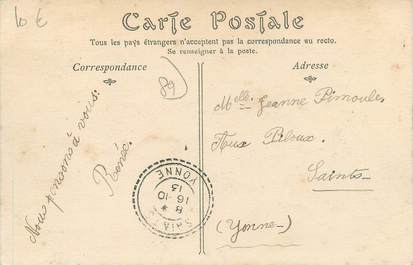 10 €
Carte Postale
Tous les pays étrangers n'acceptent pas la correspondance au recto.
Se renseigner à la poste.
Correspondance
Adresse
89
Nous pensons à vous.
Renée.
SAINTS
8 *
16-10
13
YONNE
Melle Jeanne Pimoules
Aux Piloux.
Saints
(Yonne)